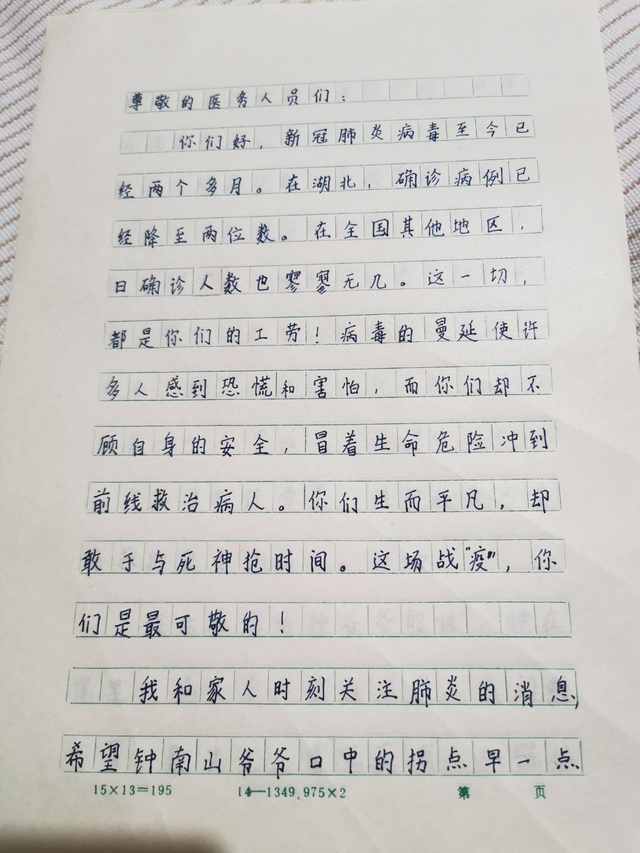 尊敬的医务人员们：
你们好，新冠肺炎病毒至今已
经两个多月。在湖北，确诊病例已
经降至两位数。在全国其他地区，
日确诊人数也寥寥无几。这一切，
都是你们的工劳！病毒的曼延使许
多人感到恐慌和害怕，而你们却不
顾自身的安全，冒着生命危险冲到
前线救治病人。你们生而平凡，却
敢于与死神抢时间。这场战"疫"，你
们是最可敬的！
我和家人时刻关注肺炎的消息，
希望钟南山爷爷口中的拐点早一点
15×13=195 14—1349.975×2 第 页